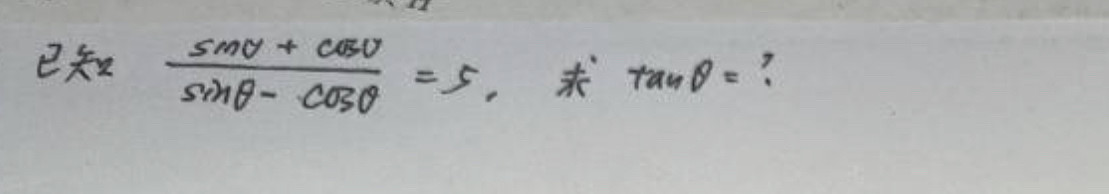 已知 (sinθ + cosθ)/(sinθ - cosθ) = 5, 求 tanθ = ?